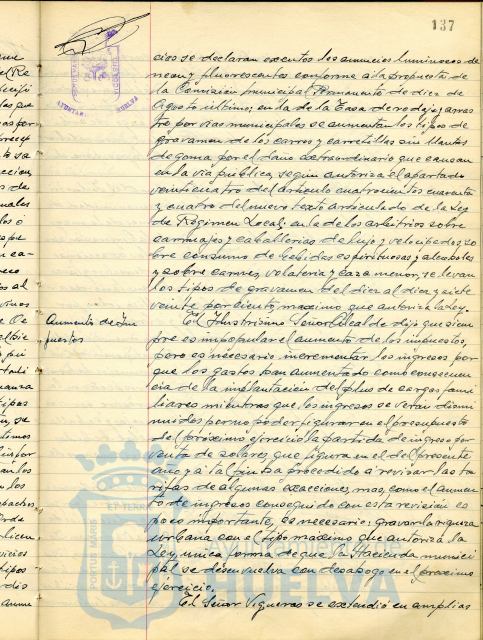 137
cios se declaran exentos los anuncios luminosos de
neon y fluorescentes conforme a la propuesta de
la Comisión Municipal Permanente de diez de
Agosto último; en la de la Tasa de rodaje y arras
tre por vías municipales se aumentan los tipos de
gravamen de los carros y carretillas sin llantas
de goma por el daño extraordinario que causan
en la vía publica, según autoriza el apartado
veinticuatro del artículo cuatrocientos cuarenta
y cuatro del nuevo texto articulado de la Ley
de Régimen Local; en la de los arbitrios sobre
carruajes y caballerías de lujo y velocípedos, so
bre consumo de bebidas espirituosas y alcoholes
y sobre carnes, volatería y caza menor, se elevan
los tipos de gravamen del diez al diez y siete
veinte por ciento, maximo que autoriza la Ley.
El Ilustrísimo Señor Alcalde dijo que siem
pre es impopular el aumento de los impuestos,
pero es necesario incrementar los ingresos por
que los gastos han aumentado como consecuen
cia de la implantación del plus de cargas fami
liares mientras que los ingresos se verán dismi
nuidos por no poder figurar en el presupuesto
del próximo ejercicio la partida de ingreso por
venta de solares, que figura en el del presente
año y a tal fin se ha procedido a revisar las ta
rifas de algunas exacciones, mas, como el aumen
to de ingresos conseguido con esta revisión es
poco importante, es necesario gravar la riqueza
urbana con el tipo maximo que autoriza la
Ley, unica forma de que la Hacienda munici
pal se desenvuelva con desahogo en el proximo
ejercicio.
El Señor Vigueras se extendió en amplias
Aumento de Im
puestos
PORTUS MARIS
ET TERRAE
HUELVA